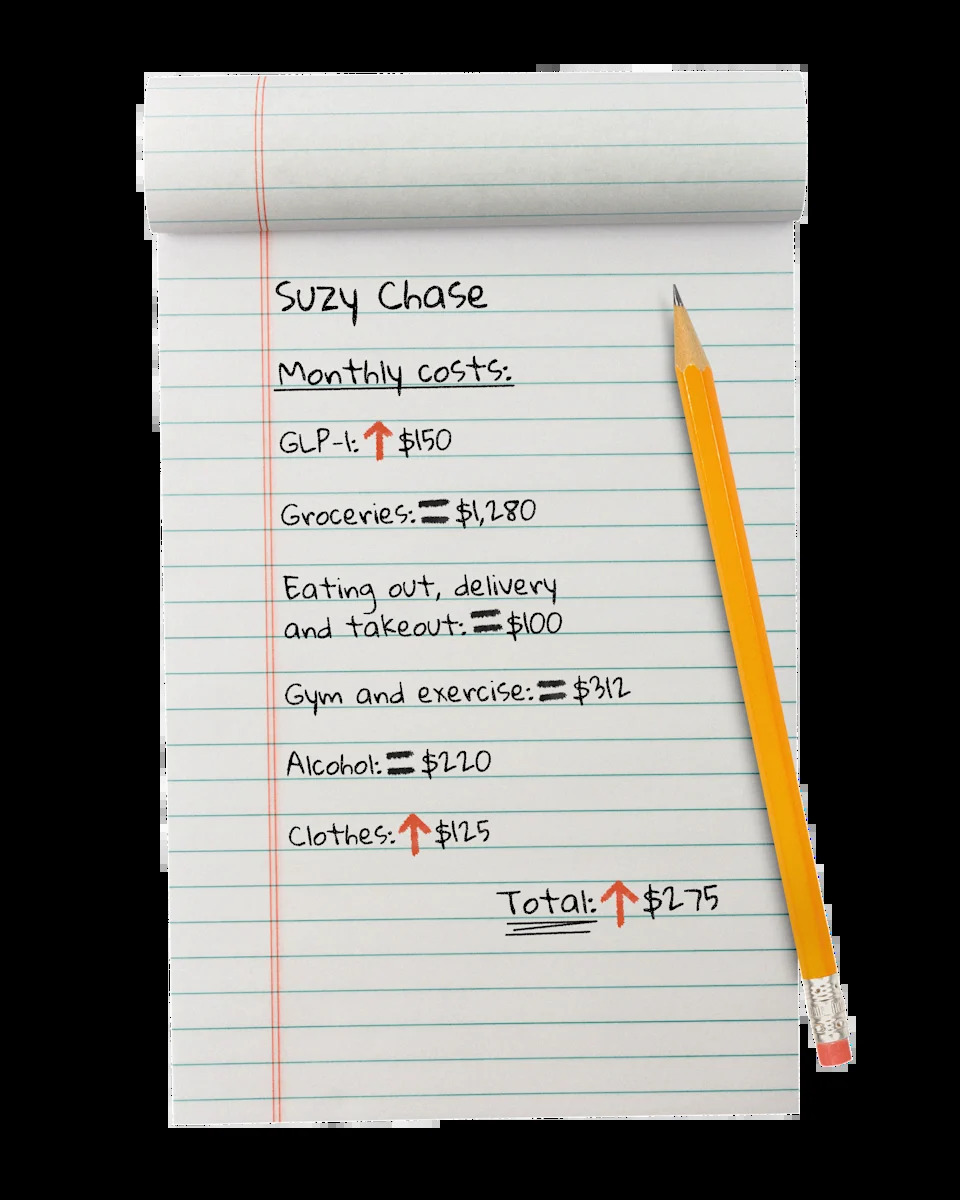 Suzy Chase
Monthly costs:
GLP-1: ↑ $150
Groceries: = $1,280
Eating out, delivery
and takeout: = $100
Gym and exercise: = $312
Alcohol: = $220
Clothes: ↑ $125
Total: ↑ $275